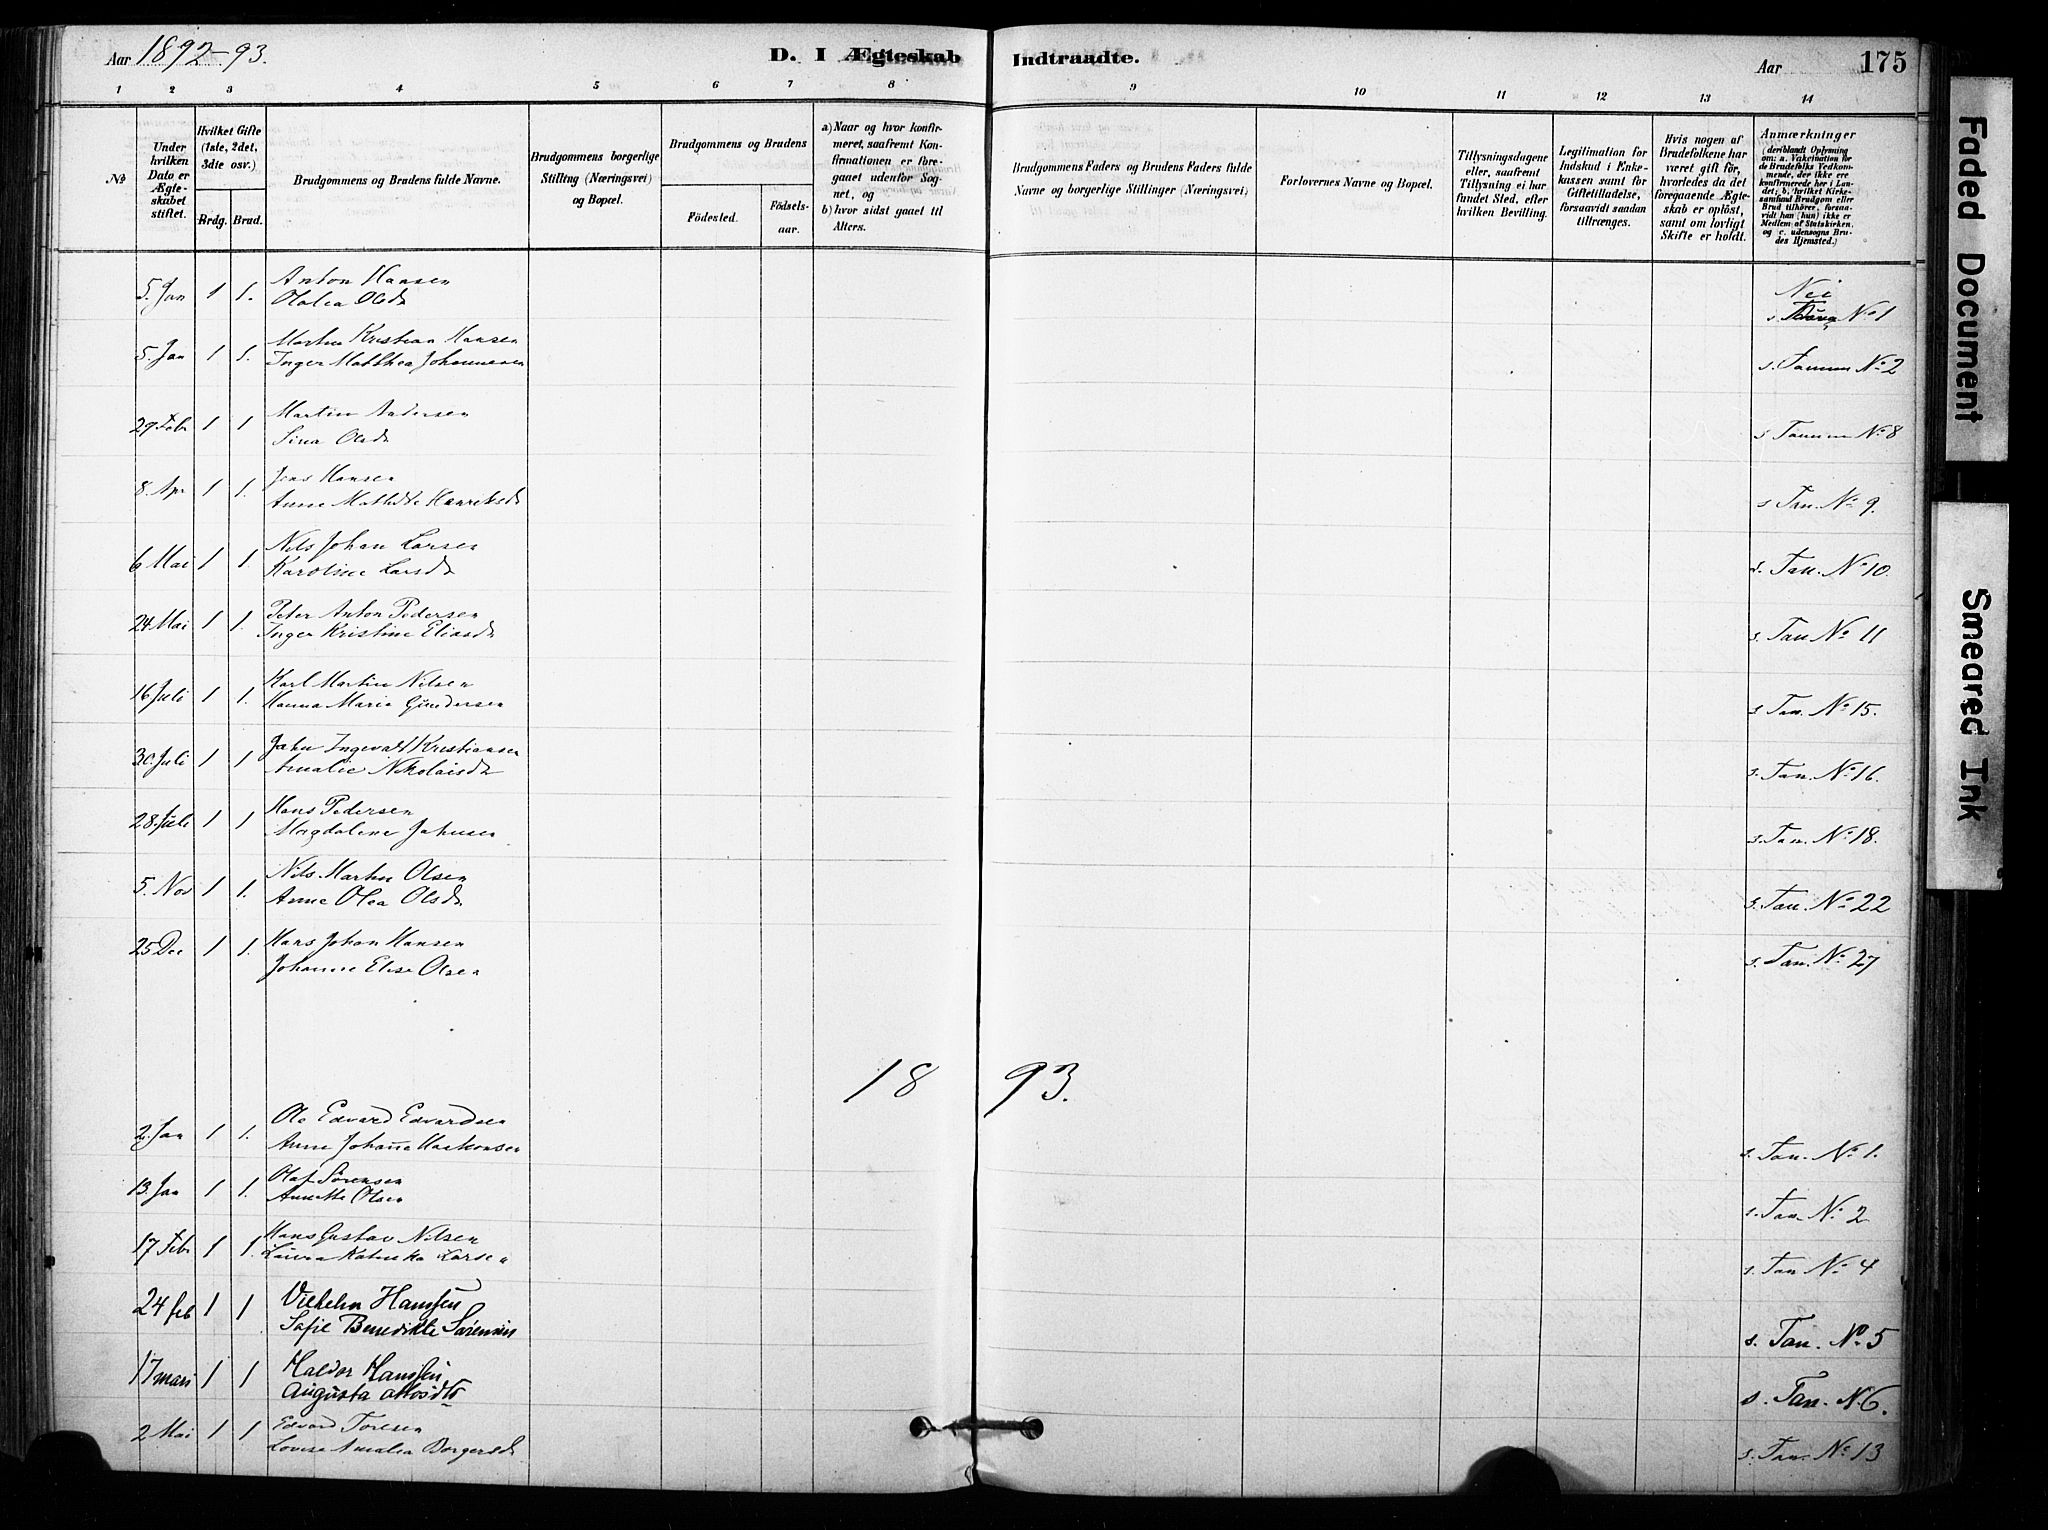 Aar 1892-93.
D. I Ægteskab Indtraadte.
Aar
175
1 2 3 4 5 6 7 8 9 10 11 12 13 14
No
Under hvilken Dato er Ægteskabet stiftet.
Hvilket Gifte (1ste, 2det, 3die osv.)
Brdg. Brud.
Brudgommens og Brudens fulde Navne.
Brudgommens borgerlige Stilling (Næringsvei) og Bopæl.
Brudgommens og Brudens
Födested.
Födselsaar.
a) Naar og hvor konfirmeret, saafremt Konfirmationen er foregaaet udenfor Sognet, og
b) hvor sidst gaaet til Alters.
Brudgommens Faders og Brudens Faders fulde Navne og borgerlige Stillinger (Næringsvei)
Forlovernes Navne og Bopæl.
Tillysningsdagene eller, saafremt Tillysning ei har fundet Sted, efter hvilken Bevilling.
Legitimation for Indskud i Enkekassen samt for Giftetilladelse, forsaavidt saadan tiltrænges.
Hvis nogen af Brudefolkene har været gift för, hvorledes da det foregaaende Ægteskab er oplöst, samt om lovligt Skifte er holdt.
Anmærkninger (deriblandt Oplysning om: a. Vakcination for de Brudefolks Vedkommende, der ikke ere konfirmerede her i Landet; b. hvilket Kirkesamfund Brudgom eller Brud tilhörer, forsaavidt han (hun) ikke er Medlem af Statskirken, og c. udensogns Brudes Hjemsted.)
5. Jan 1 1. Anton Hansen
Olalea Olsdr
Nei
No 1
5. Jan 1 1. Martin Kristian Hansen
Inger Matthea Johannesen s. Tanum No 2
29 Febr 1 1 Martin Andersen
Sina Olsdr s Tanum No 8
8. Apr 1 1. Jens Hansen
Anne Mathilde Henriksdr s Tan. No 9.
6 Mai 1 1. Nils Johan Larsen
Karoline Larsdr s. Tan. No 10.
24 Mai 1 1. Peter Anton Pedersen
Inger Kristine Eliasdr s. Tan No 11
16 Juli 1 1. Karl Martin Nilsen
Hanna Maria Gundersen s Tan. No 15.
30. Juli 1 1 John Ingevald Kristiansen
Amalie Nikolaisdr s. Tan. No 16.
28. Juli 1 1 Hans Pedersen
Magdalene Johnsen s. Tan. No 18.
5. Nov 1 1. Nils Martin Olsen
Anne Olea Olsdr s. Tan. No 22
25 Dec 1 1. Hans Johan Hansen
Johanne Elise Olsen s. Tan. No 27
1893.
2. Jan 1 1. Ole Edvard Edvardsen
Anne Johanne Haakonsen s. Tan. No 1.
13. Jan 1 1. Olaf Sörensen
Annette Olsen s. Tan No 2
17 Febr 1 1. Hans Gustav Nilsen
Laura Katinka Larsen s. Tan No 4
24 feb 1 1 Vilhelm Hanssen
Sofie Benedikte Sørensen s. Tan. No 5
17 mars 1 1 Haldor Hanssen
Augusta Olsdtr s. Tan. N. 6.
2 Mai 1 1 Edvard Toresen
Lovise Amalia Borgersdr s. Tan. No 13
Faded Document
Smeared Ink